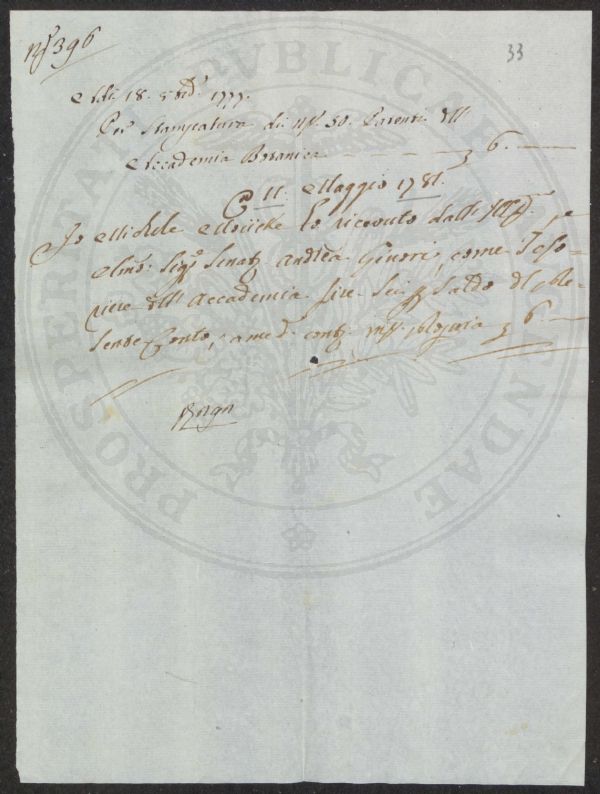 N.º 396
33
Adì 18. 8bre. 1777.
Per Stampatura di Nº. 50. Patenti dell
Accademia Botanica — — — £ 6. —
C. 11. Maggio 1781.
Io Michele Moücke ho ricevuto dall Ill.
Sigr. Senat. Andrea Ginori, come Teso=
riere dell Accademia Lire Sei p Saldo del Pre=
sente Conto, a me d. cont. £ 6 —
PROSPERITATI PUBLICAE AUGENDAE